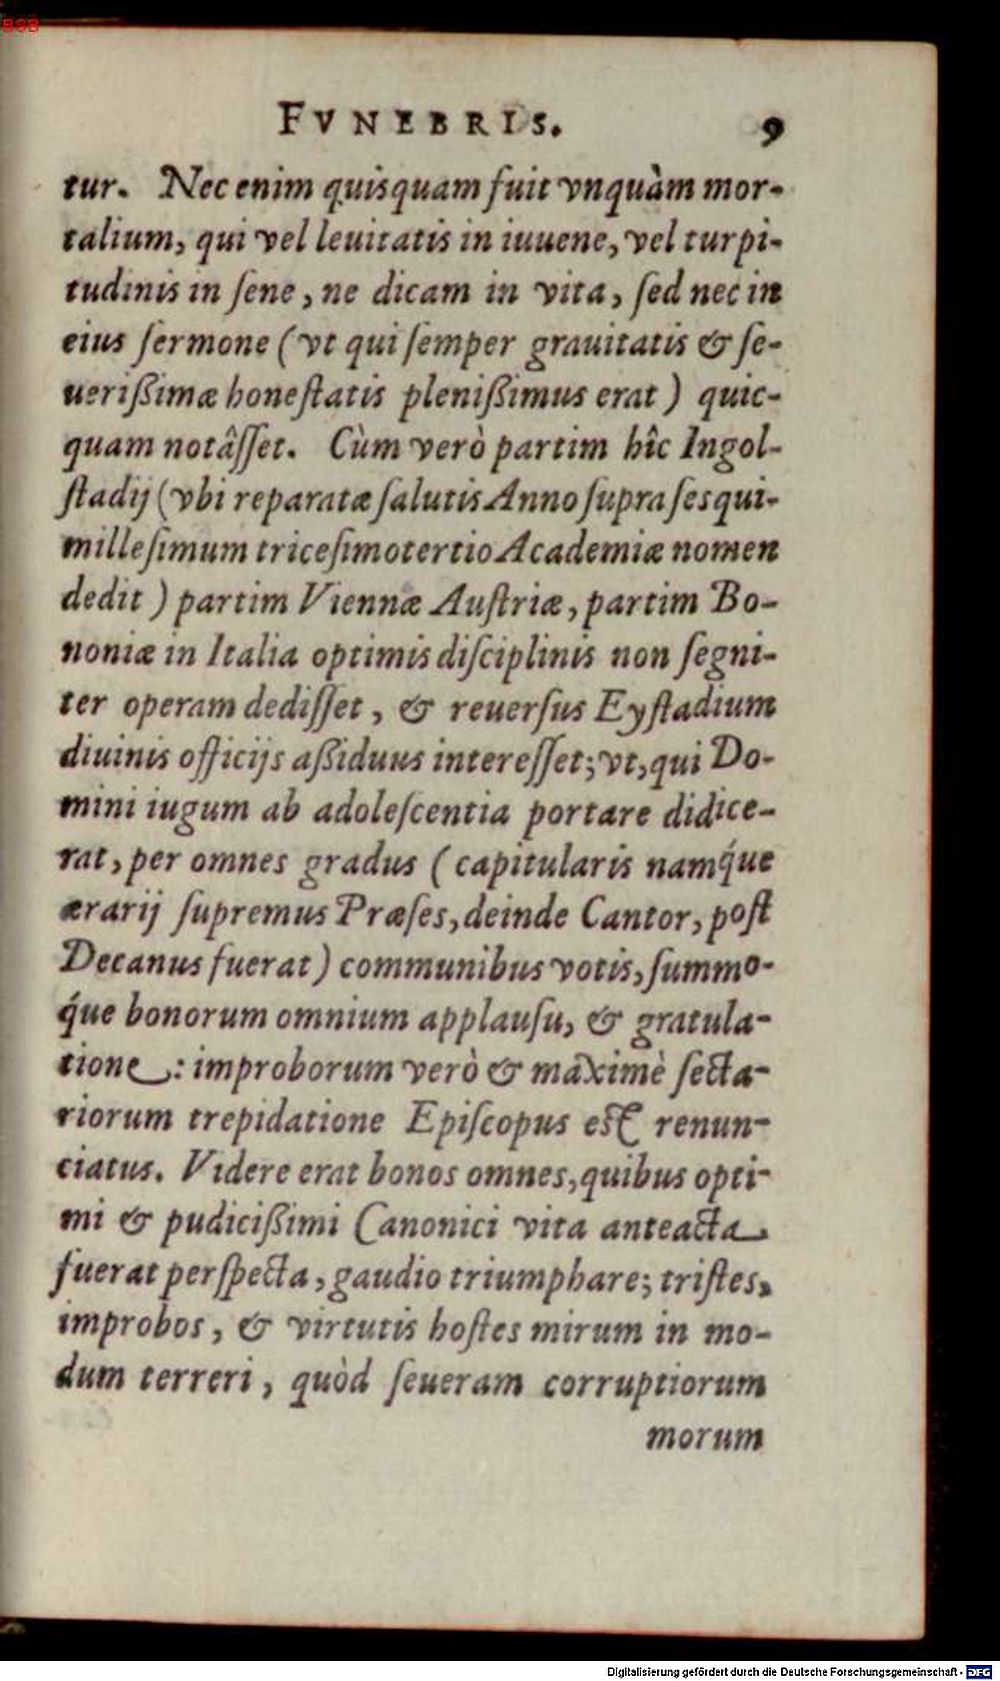 BSB
FVNEBRIS. 9
tur. Nec enim quisquam fuit vnquàm mor-
talium, qui vel leuitatis in iuuene, vel turpi-
tudinis in ſene, ne dicam in vita, ſed nec in
eius ſermone (vt qui ſemper grauitatis & ſe-
ueriſsimæ honeſtatis pleniſsimus erat) quic-
quam notâſſet. Cùm verò partim hîc Ingol-
ſtadij (vbi reparatæ ſalutis Anno ſupra ſesqui-
milleſimum triceſimotertio Academiæ nomen
dedit) partim Viennæ Auſtriæ, partim Bo-
noniæ in Italia optimis diſciplinis non ſegni-
ter operam dediſſet, & reuerſus Eyſtadium
diuinis officijs aſsiduus intereſſet; vt, qui Do-
mini iugum ab adoleſcentia portare didice-
rat, per omnes gradus (capitularis namq́ue
ærarij ſupremus Præſes, deinde Cantor, poſt
Decanus fuerat) communibus votis, ſummo-
q́ue bonorum omnium applauſu, & gratula-
tione: improborum verò & maximè ſecta-
riorum trepidatione Epiſcopus eſt renun-
ciatus. Videre erat bonos omnes, quibus opti-
mi & pudiciſsimi Canonici vita anteacta
fuerat perſpecta, gaudio triumphare; triſtes,
improbos, & virtutis hoſtes mirum in mo-
dum terreri, quòd ſeueram corruptiorum
morum
Digitalisierung gefördert durch die Deutsche Forschungsgemeinschaft - DFG